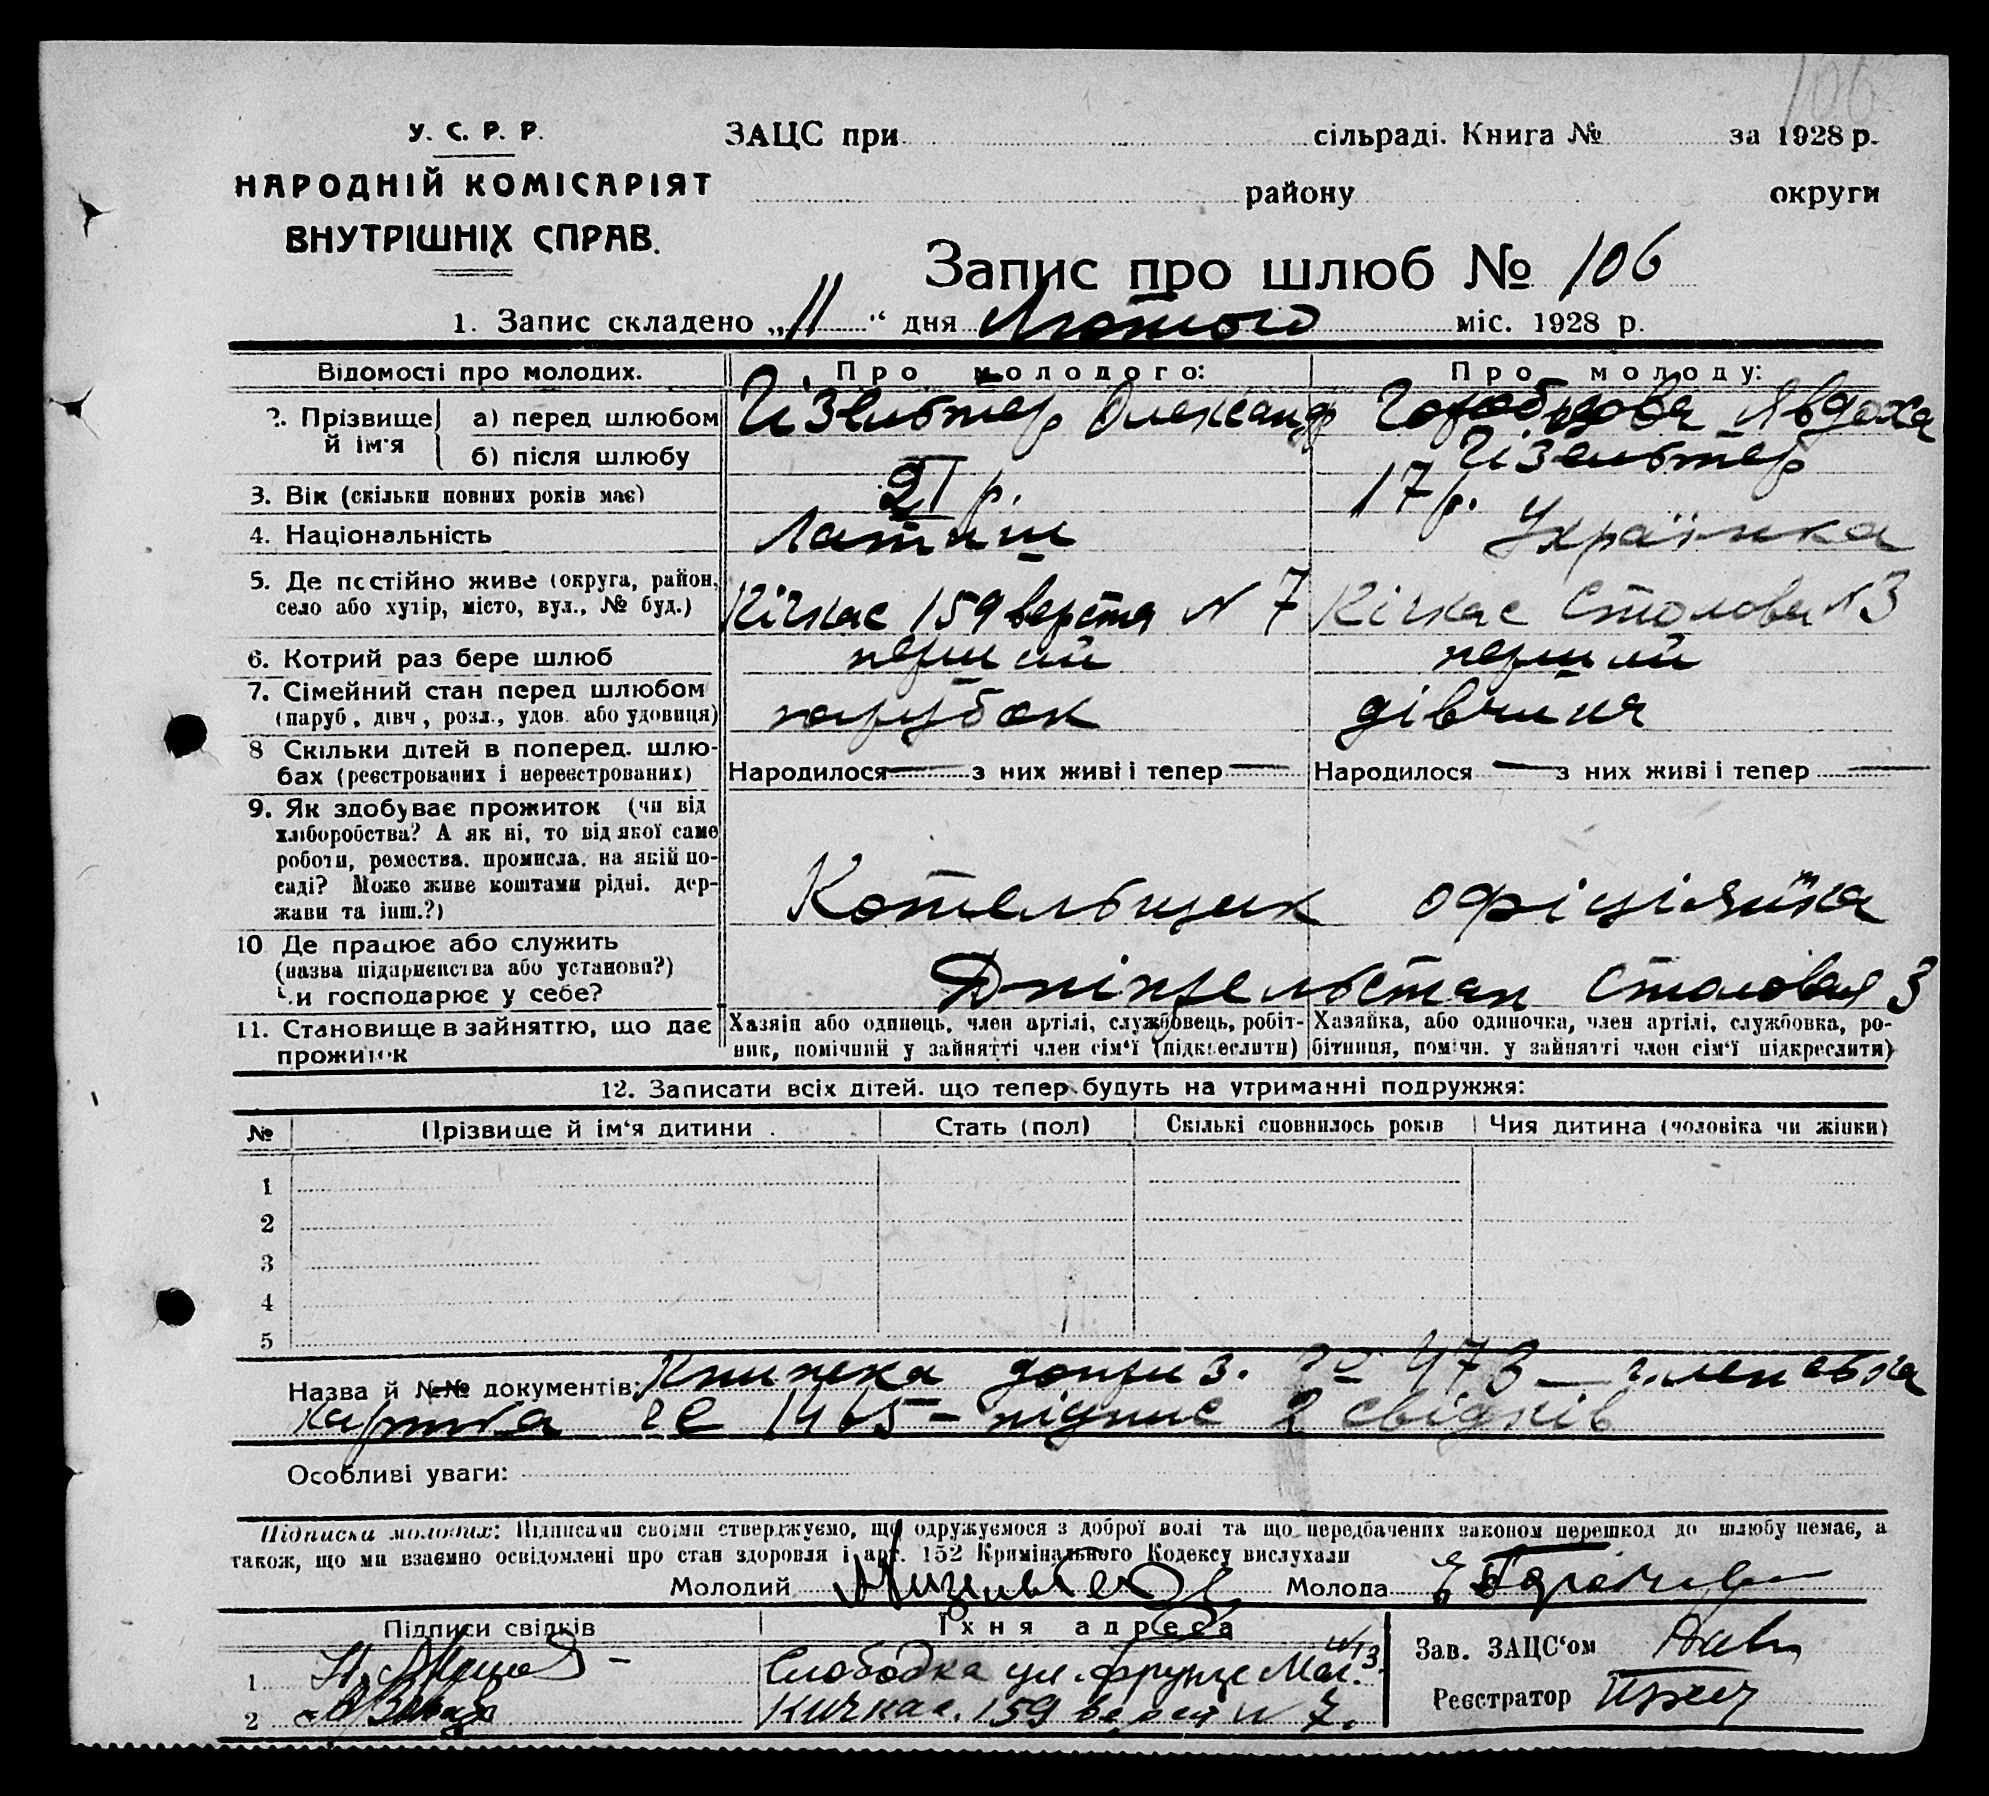 106
У. С. Р. Р.
НАРОДНІЙ КОМІСАРІЯТ
ВНУТРІШНІХ СПРАВ.
ЗАЦС при сільраді. Книга № за 1928 р.
району округи
Запис про шлюб № 106
1. Запис складено „11“ дня Лютого міс. 1928 р.
Відомості про молодих. Про молодого: Про молоду:
2. Прізвище й ім'я а) перед шлюбом Ізельтер Олександр Явдоха
б) після шлюбу Ізельтер
3. Вік (скільки повних років має) 21 р. 17 р.
4. Національність Латиш Українка
5. Де постійно живе (округа, район, село або хутір, місто, вул., № буд.) Кічкас 159 верста N 7 Кічкас Столова N 3
6. Котрий раз бере шлюб перший перший
7. Сімейний стан перед шлюбом (паруб., дівч., розл., удов. або удовиця) парубок дівчиня
8 Скільки дітей в поперед. шлюбах (реєстрованих і нереєстрованих) Народилося — з них живі і тепер — Народилося — з них живі і тепер —
9. Як здобуває прожиток (чи від хліборобства? А як ні, то від якої саме роботи, ремества, промисла, на якій посаді? Може живе коштами рідні, держави та інш.?) Котельщик офіціянтка
10 Де працює або служить (назва підприємства або установи?) Чи господарює у себе? Дніпрельстан Столовая 3
11. Становище в зайняттю, що дає прожиток Хазяїн або одинець, член артілі, службовець, робітник, помічний у зайнятті член сім'ї (підкреслити) Хазяйка, або одиночка, член артілі, службовка, робітниця, помічн. у зайнятті член сім'ї підкреслити)
12. Записати всіх дітей. що тепер будуть на утриманні подружжя:
№ Прізвище й ім'я дитини Стать (пол) Скількі сповнилось років Чия дитина (чоловіка чи жінки)
1
2
3
4
5
Назва й №№ документів: Книжка № 473 — членська
картка № 1465 — підпис 2 свідків
Особливі уваги:
Підписка молодих: Підписами своїми стверджуємо, що одружуємося з доброї волі та що передбачених законом перешкод до шлюбу немає, а
також, що ми взаємно освідомлені про стан здоровля і арт. 152 Кримінального Кодексу вислухали
Молодий Молода
Підписи свідків Їхня адреса
1 Слободка ул. Фрунзе
2 Кичкас. 159 верст N 7.
Зав. ЗАЦС'ом
Реєстратор